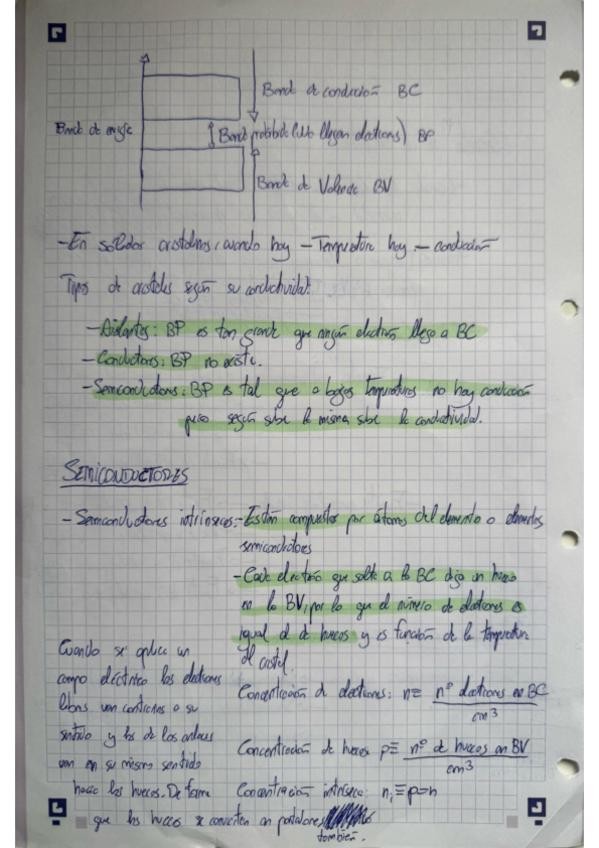 Banda de conducción BC
Banda de energía
Banda prohibida (no llegan electrones) BP
Banda de Valencia BV
- En sólidos cristalinos, cuando hay - Temperatura hay - conducción
Tipos de cristales según su conductividad:
- Aislantes: BP es tan grande que ningún electrón llega a BC
- Conductores: BP no existe.
- Semiconductores: BP es tal que a bajas temperaturas no hay conducción
pero según sube la misma sube la conductividad.
SEMICONDUCTORES
- Semiconductores intrínsecos: - Están compuestos por átomos del elemento o elementos
semiconductores
- Cada electrón que salta a la BC deja un hueco
en la BV, por lo que el número de electrones es
igual al de huecos y es función de la temperatura
del cristal.
Concentración de electrones: n ≡ nº electrones en BC
cm³
Concentración de huecos p ≡ nº de huecos en BV
cm³
Concentración intrínseca: nᵢ ≡ p = n
Cuando se aplica un
campo eléctrico los electrones
libres van contrarios a su
sentido y los de los enlaces
van en su mismo sentido
hacia los huecos. De forma
que los huecos se convierten en portadores
también.